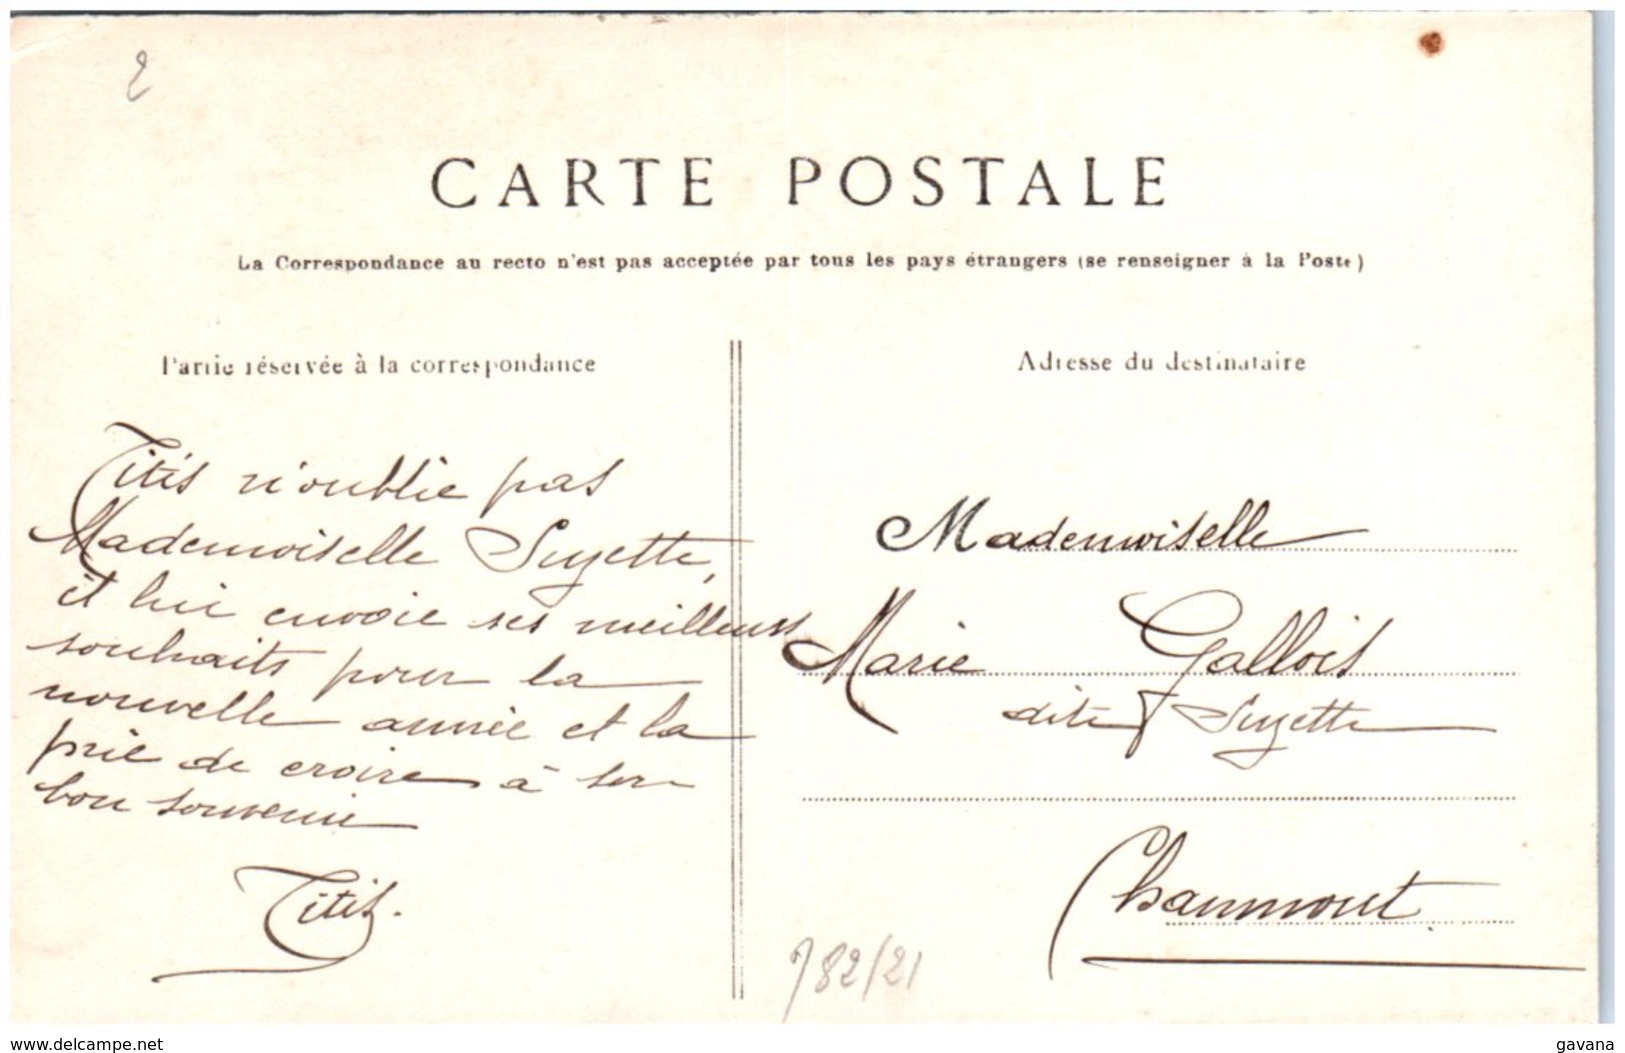 2
CARTE POSTALE
La Correspondance au recto n'est pas acceptée par tous les pays étrangers (se renseigner à la Poste)
Partie réservée à la correspondance
Titis n'oublie pas
Mademoiselle Suzette,
et lui envoie ses meilleurs
souhaits pour la
nouvelle année et la
prie de croire à son
bon souvenir
Titis.
Adresse du destinataire
Mademoiselle
Marie Gallois
dite Suzette
Chaumont
782/21
www.delcampe.net
gavana